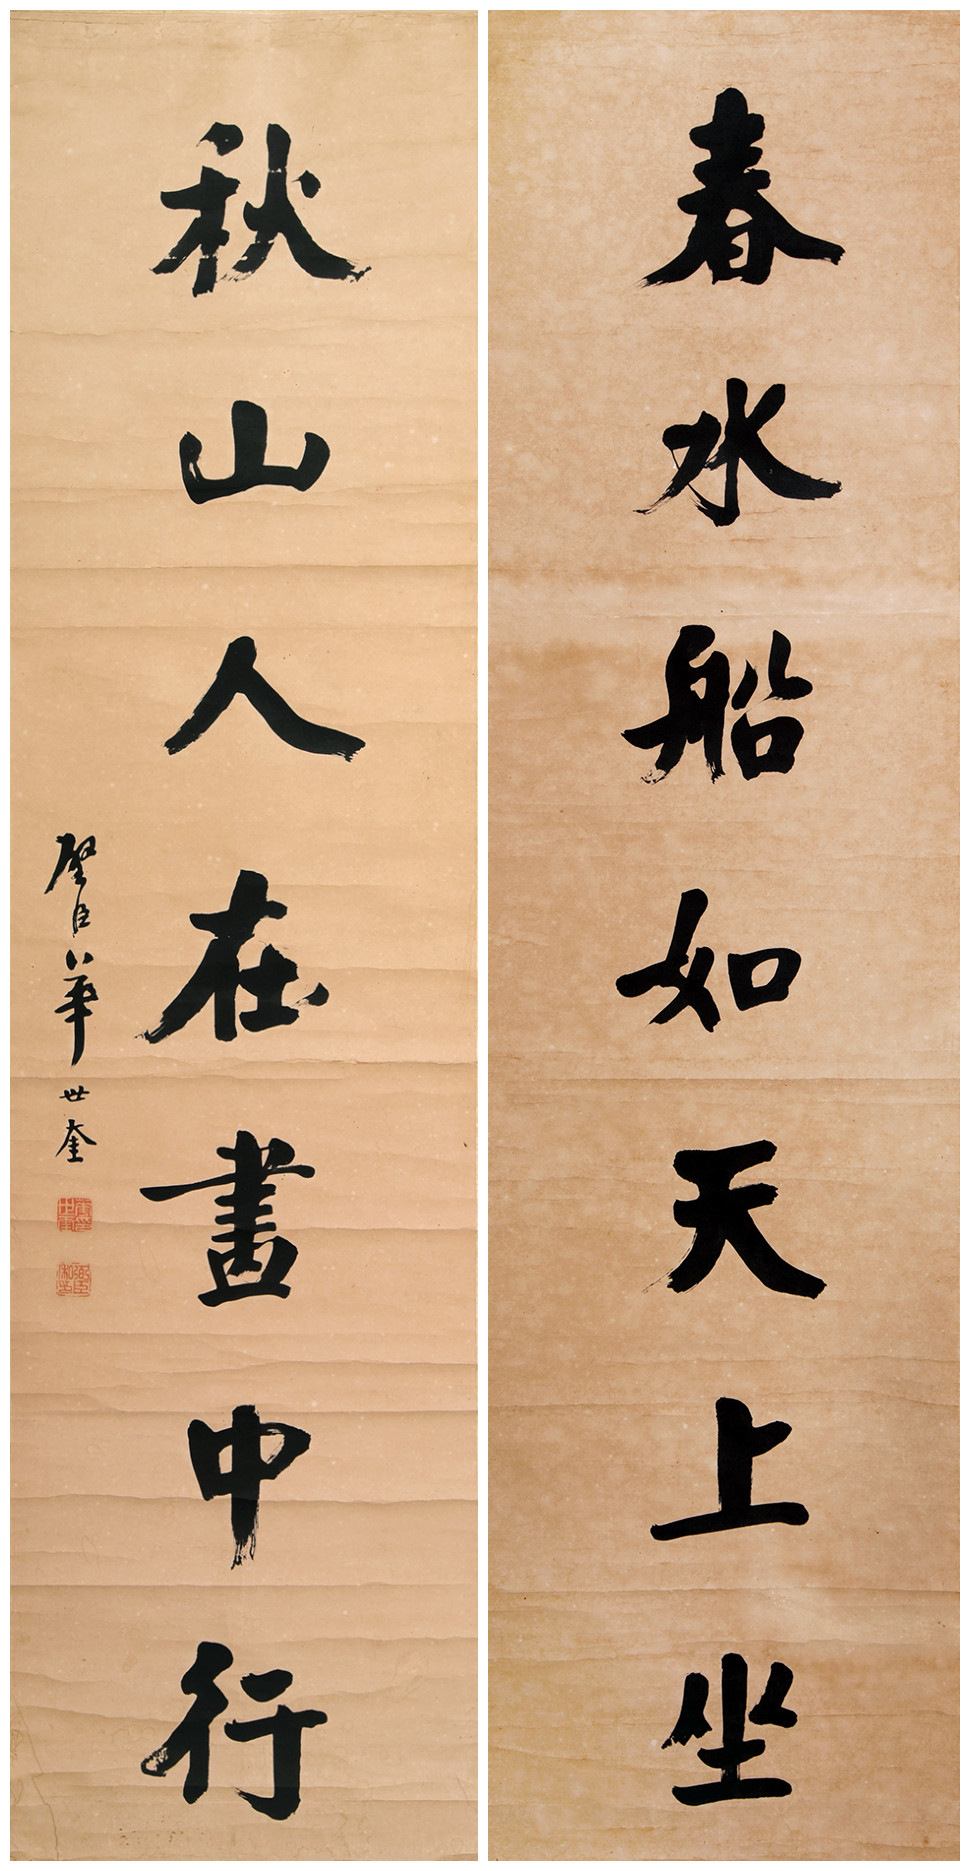 春水船如天上坐
秋山人在畫中行
璧臣華世奎